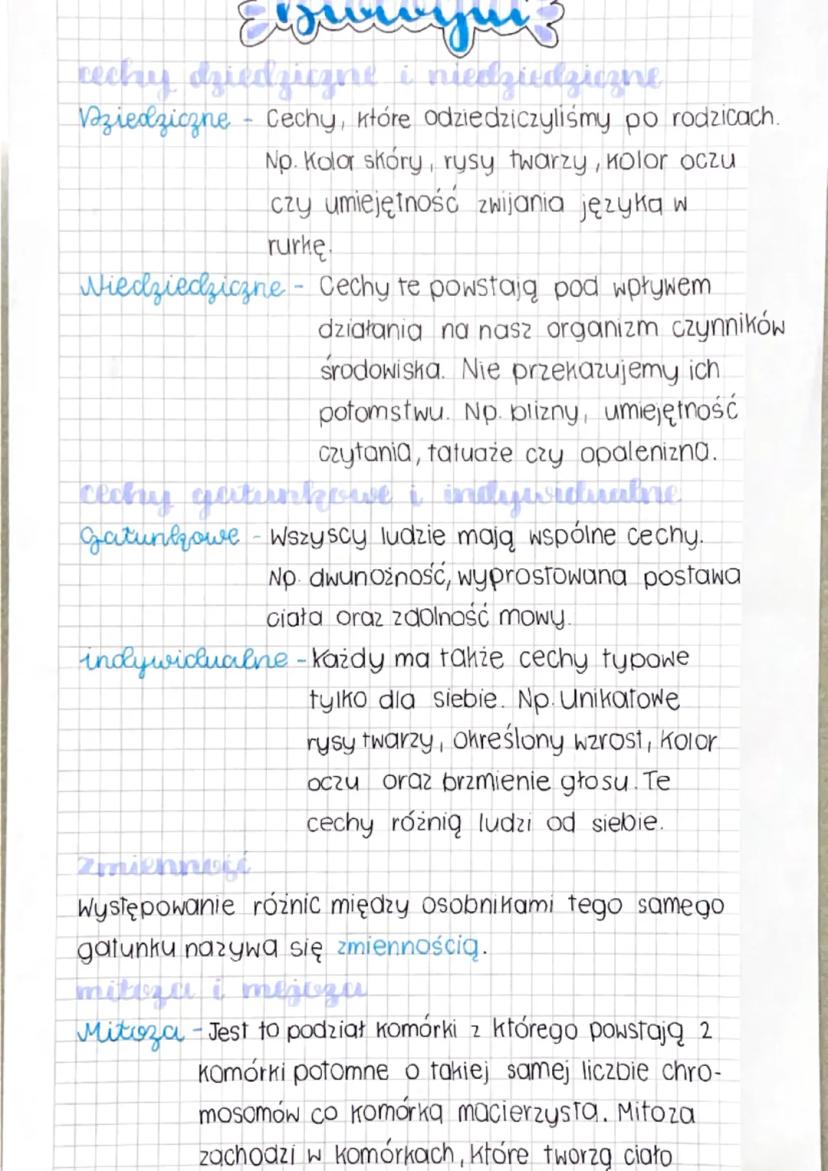 cechy dziedziczne i niedziedziczne
Dziedziczne - Cechy, które odziedziczyliśmy po rodzicach.
Np. Kolor skóry, rysy twarzy, kolor oczu
czy umiejętność zwijania języka w
rurkę.
Niedziedziczne - Cechy te powstają pod wpływem
działania na nasz organizm czynników
środowiska. Nie przekazujemy ich
potomstwu. Np. blizny, umiejętność
czytania, tatuaże czy opalenizna.
cechy gatunkowe i indywidualne
Gatunkowe - Wszyscy ludzie mają wspólne cechy.
Np. dwunożność, wyprostowana postawa
ciała oraz zdolność mowy.
indywidualne - Każdy ma także cechy typowe
tylko dla siebie. Np. Unikatowe
rysy twarzy, określony wzrost, kolor
oczu oraz brzmienie głosu. Te
cechy różnią ludzi od siebie.
zmienność
Występowanie różnic między osobnikami tego samego
gatunku nazywa się zmiennością.
mitoza i mejoza
Mitoza - Jest to podział komórki z którego powstają 2
komórki potomne o takiej samej liczbie chro-
mosomów co komórka macierzysta. Mitoza
zachodzi w komórkach, które tworzą ciało